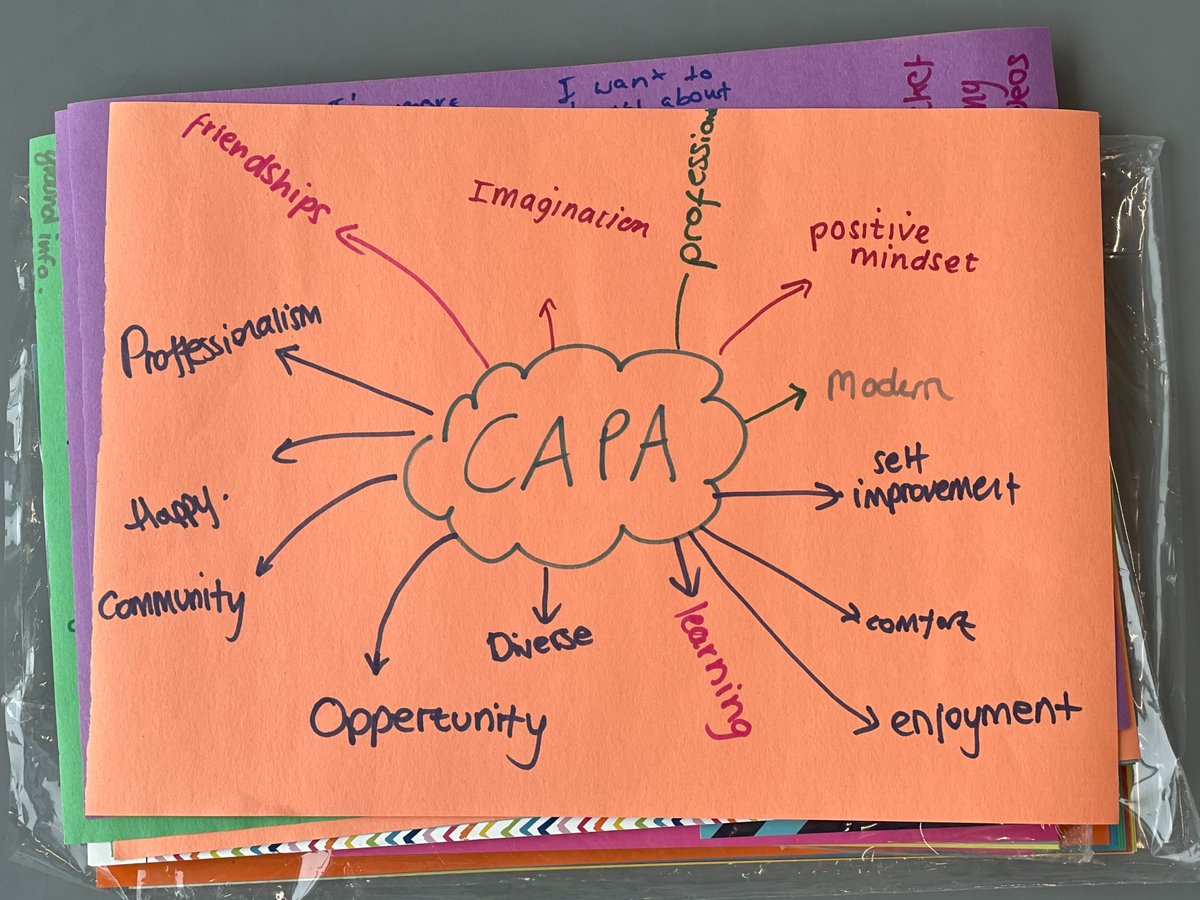 I want to
about
ground info.
friendships
Imagination
profession
positive
mindset
Proffessionalism
Modern
CAPA
self
improvement
Happy.
Community
Diverse
learning
comfort
Oppertunity
enjoyment